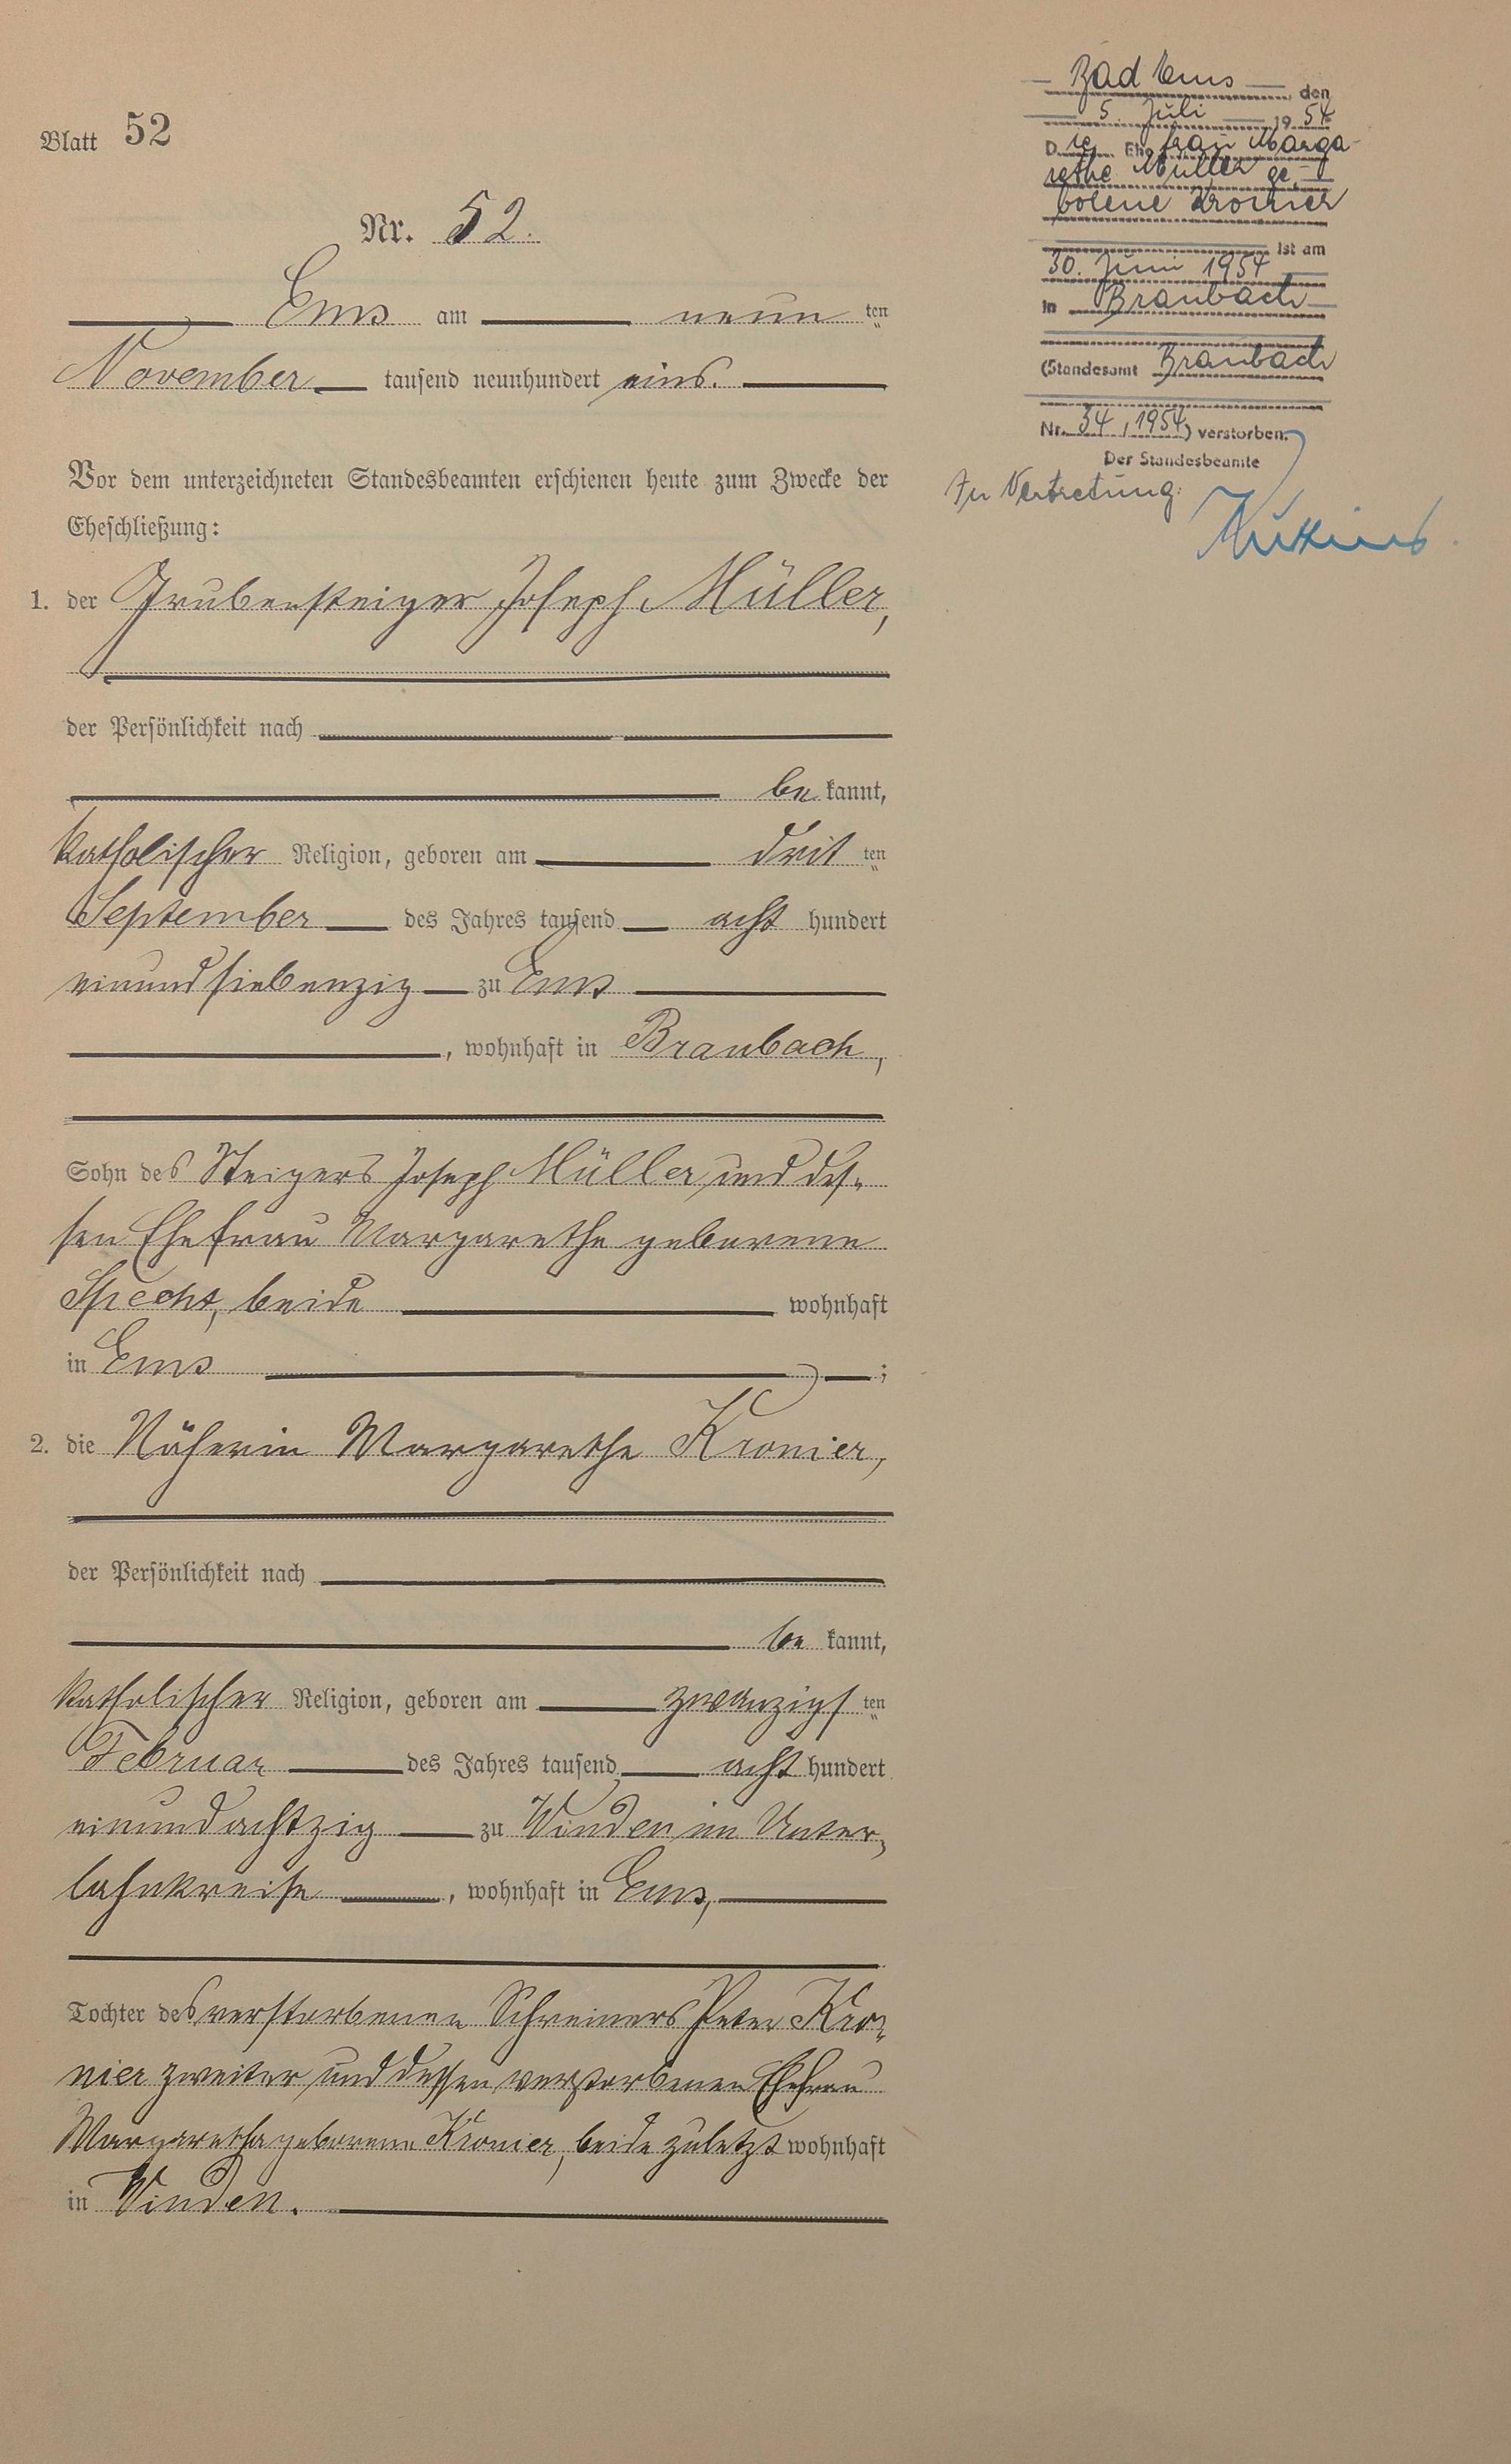 Blatt 52
Nr. 52.
Ems am neun ten
November tausend neunhundert eins.
Vor dem unterzeichneten Standesbeamten erschienen heute zum Zwecke der
Eheschließung:
1. der Grubensteiger Joseph Müller,
der Persönlichkeit nach
be kannt,
katholischer Religion, geboren am drit ten
September des Jahres tausend acht hundert
einundsiebenzig zu Ems
, wohnhaft in Braubach,
Sohn des Steigers Joseph Müller und des-
sen Ehefrau Margarethe geborene
Specht, beide wohnhaft
in Ems ;
2. die Näherin Margarethe Kronier,
der Persönlichkeit nach
be kannt,
katholischer Religion, geboren am zwanzigs ten
Februar des Jahres tausend acht hundert
einundachtzig zu Winden im Unter-
lahnkreise , wohnhaft in Ems,
Tochter des verstorbenen Schreiners Peter Kro-
nier zweiter und dessen verstorbenen Ehefrau
Margaretha geborene Kronier, beide zuletzt wohnhaft
in Winden.
Bad Ems , den
5. Juli 19 54
D ie Ehe frau Marga-
rethe Müller ge-
borene Kronier
ist am
30. Juni 1954
in Braubach
(Standesamt Braubach
Nr. 34 / 1954 ) verstorben.
Der Standesbeamte
In Vertretung: